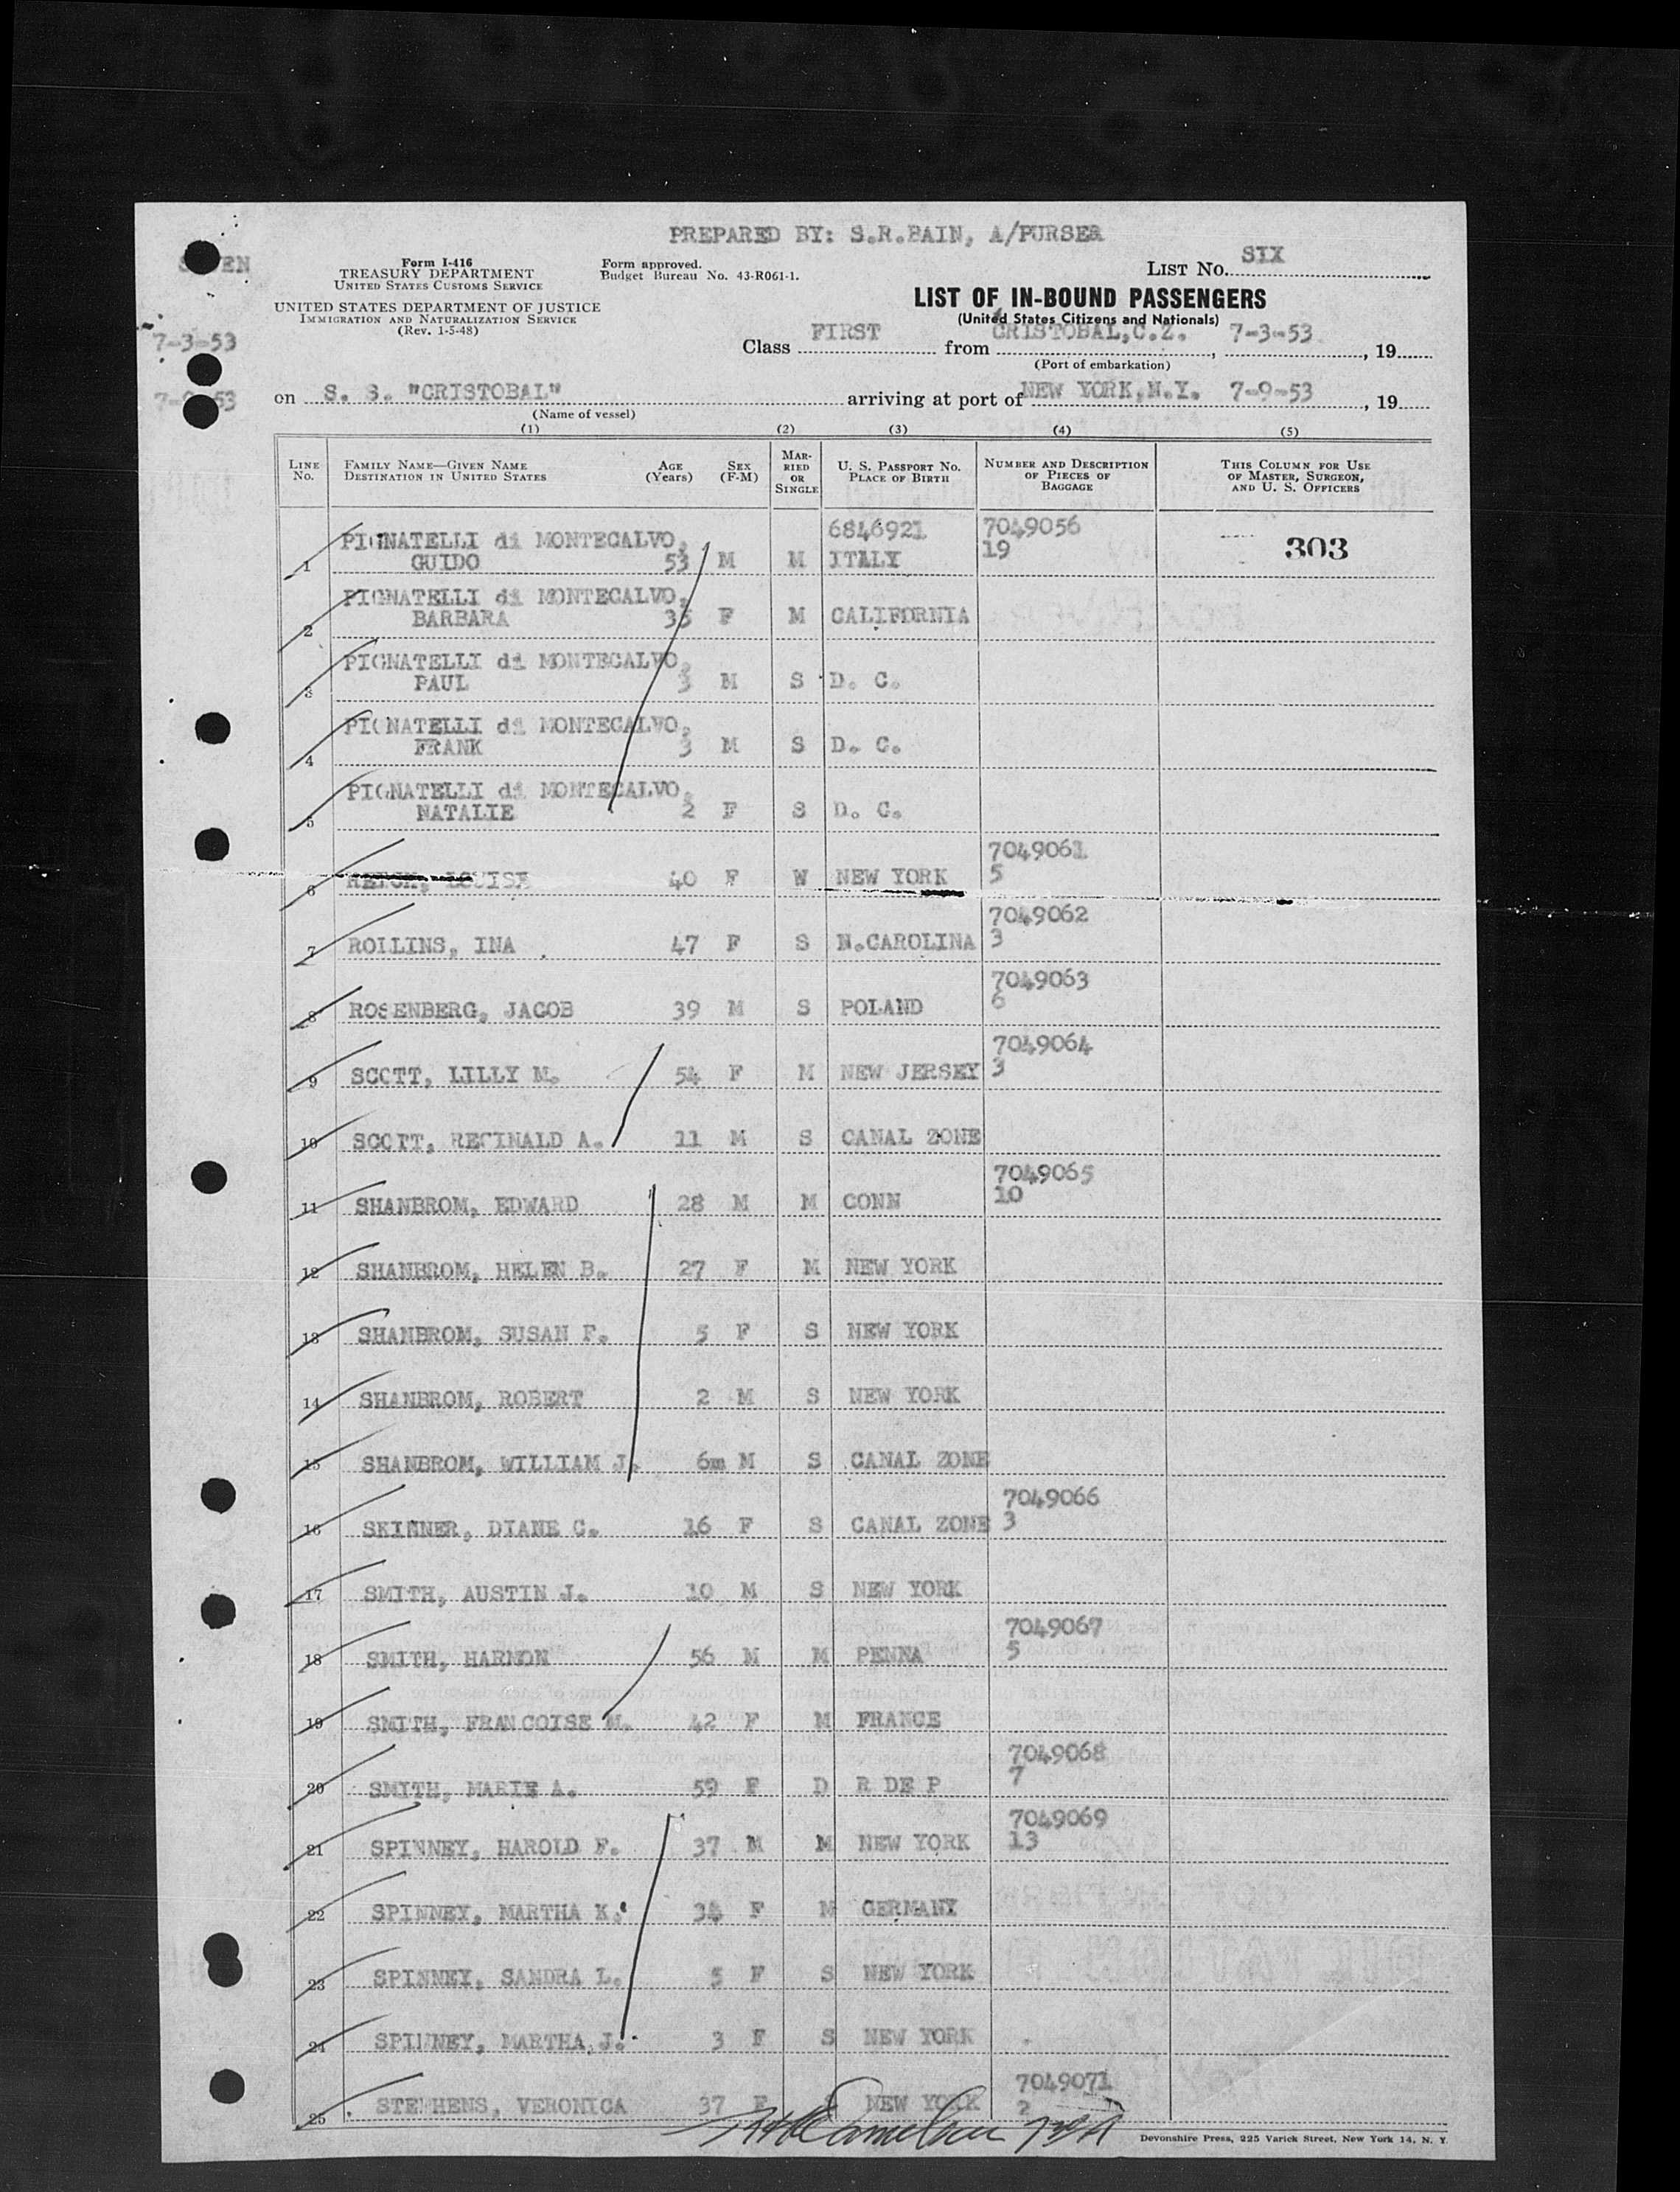 PREPARED BY: S.R.BAIN, A/PURSER
Form I-416
TREASURY DEPARTMENT
UNITED STATES CUSTOMS SERVICE
UNITED STATES DEPARTMENT OF JUSTICE
IMMIGRATION AND NATURALIZATION SERVICE
(Rev. 1-5-48)
Form approved.
Budget Bureau No. 43-R061-1.
LIST NO. SIX
LIST OF IN-BOUND PASSENGERS
(United States Citizens and Nationals)
7-3-53
Class FIRST from CRISTOBAL,C.Z. , 7-3-53 , 19
(Port of embarkation)
on S. S. "CRISTOBAL" arriving at port of NEW YORK,N.Y. 7-9-53 , 19
(Name of vessel)
(1) (2) (3) (4) (5)
LINE NO. FAMILY NAME—GIVEN NAME DESTINATION IN UNITED STATES AGE (Years) SEX (F-M) MARRIED OR SINGLE U. S. PASSPORT NO. PLACE OF BIRTH NUMBER AND DESCRIPTION OF PIECES OF BAGGAGE THIS COLUMN FOR USE OF MASTER, SURGEON, AND U. S. OFFICERS
PIGNATELLI di MONTECALVO, 6846921 7049056
1 GUIDO 53 M M ITALY 19 303
PIGNATELLI di MONTECALVO,
2 BARBARA 35 F M CALIFORNIA
PIGNATELLI di MONTECALVO,
3 PAUL 3 M S D. C.
PIGNATELLI di MONTECALVO,
4 FRANK 3 M S D. C.
PIGNATELLI di MONTECALVO,
5 NATALIE 2 F S D. C.
7049061
6 LOUISE 40 F W NEW YORK 5
7049062
7 ROLLINS, INA 47 F S N.CAROLINA 3
7049063
8 ROSENBERG, JACOB 39 M S POLAND 6
7049064
9 SCOTT, LILLY M. 54 F M NEW JERSEY 3
10 SCOTT, REGINALD A. 11 M S CANAL ZONE
7049065
11 SHANBROM, EDWARD 28 M M CONN 10
12 SHANBROM, HELEN B. 27 F M NEW YORK
13 SHANBROM, SUSAN F. 5 F S NEW YORK
14 SHANBROM, ROBERT 2 M S NEW YORK
15 SHANBROM, WILLIAM J. 6m M S CANAL ZONE
7049066
16 SKINNER, DIANE C. 16 F S CANAL ZONE 3
17 SMITH, AUSTIN J. 10 M S NEW YORK
7049067
18 SMITH, HARMON 56 M M PENNA 5
19 SMITH, FRANCOISE M. 42 F M FRANCE
7049068
20 SMITH, MARIE A. 59 F D R DE P 7
7049069
21 SPINNEY, HAROLD F. 37 M M NEW YORK 13
22 SPINNEY, MARTHA K. 34 F M GERMANY
23 SPINNEY, SANDRA L. 5 F S NEW YORK
24 SPINNEY, MARTHA J. 3 F S NEW YORK
7049071
25 STEPHENS, VERONICA 37 F S NEW YORK 2
Devonshire Press, 225 Varick Street, New York 14, N. Y.